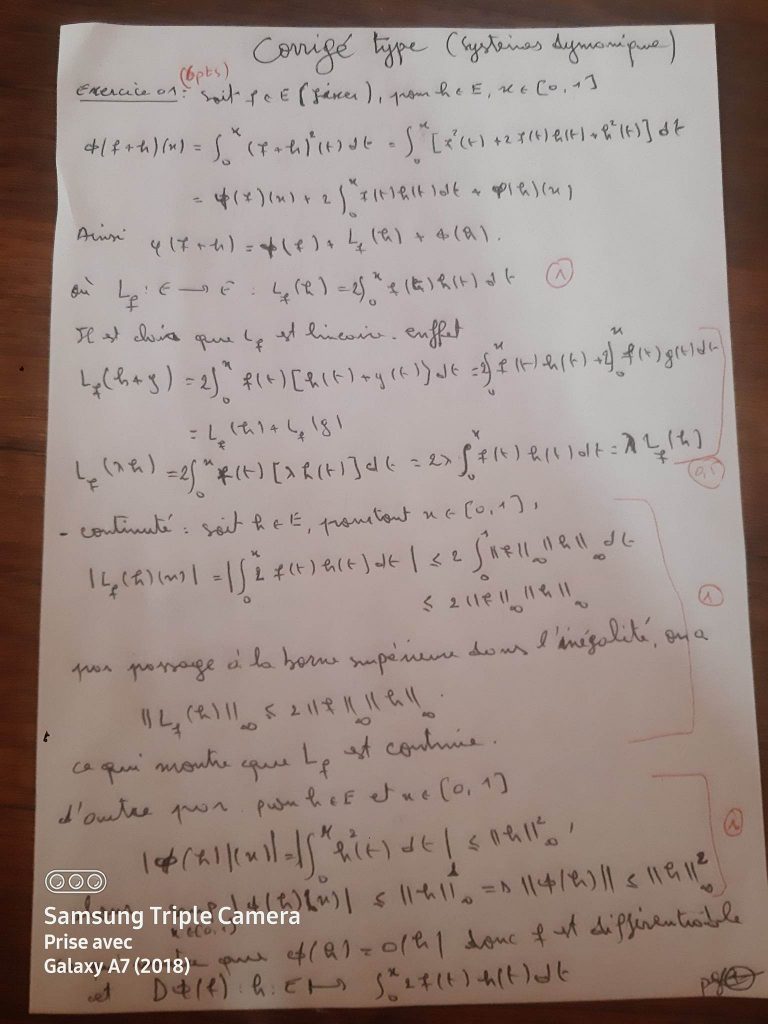 Corrigé type (systèmes dymanique)
(6pts)
Exercice 01: soit f ∈ E (fixer), pour h ∈ E, x ∈ [0,1]
φ(f+h)(x) = ∫₀ˣ (f+h)²(t) dt = ∫₀ˣ [f²(t) + 2 f(t) h(t) + h²(t)] dt
= φ(f)(x) + 2∫₀ˣ f(t) h(t) dt + φ(h)(x)
Ainsi φ(f+h) = φ(f) + L_f(h) + φ(h).
où L_f : E → E : L_f(h) = 2∫₀ˣ f(t) h(t) dt (1)
Il est clair que L_f est lineaire. enffet
L_f(h+g) = 2∫₀ˣ f(t) [h(t) + g(t)] dt = 2∫₀ˣ f(t) h(t) + 2∫₀ˣ f(t) g(t) dt
= L_f(h) + L_f(g)
L_f(λh) = 2∫₀ˣ f(t) [λ h(t)] dt = 2λ ∫₀ˣ f(t) h(t) dt = λ L_f(h)
0,5
- continuté : soit h ∈ E, pour tout x ∈ [0,1],
|L_f(h)(x)| = |∫₀ˣ 2 f(t) h(t) dt| ≤ 2 ∫₀¹ ||f||∞ ||h||∞ dt
≤ 2 ||f||∞ ||h||∞ (1)
par passage à la borne supérieure dans l'inégalité, on a
||L_f(h)||∞ ≤ 2 ||f||∞ ||h||∞.
ce qui montre que L_f est continue.
d'autre par. pour h ∈ E et x ∈ [0,1]
|φ(h)(x)| = |∫₀ˣ h²(t) dt| ≤ ||h||²∞, (1)
|φ(h)(x)| ≤ ||h||²∞ ⇒ ||φ(h)|| ≤ ||h||²∞
x ∈ (0,1)
que φ(h) = o(h) donc f est différentiable
et Dφ(f) : h : E ↦ ∫₀ˣ 2 f(t) h(t) dt
Samsung Triple Camera
Prise avec
Galaxy A7 (2018)